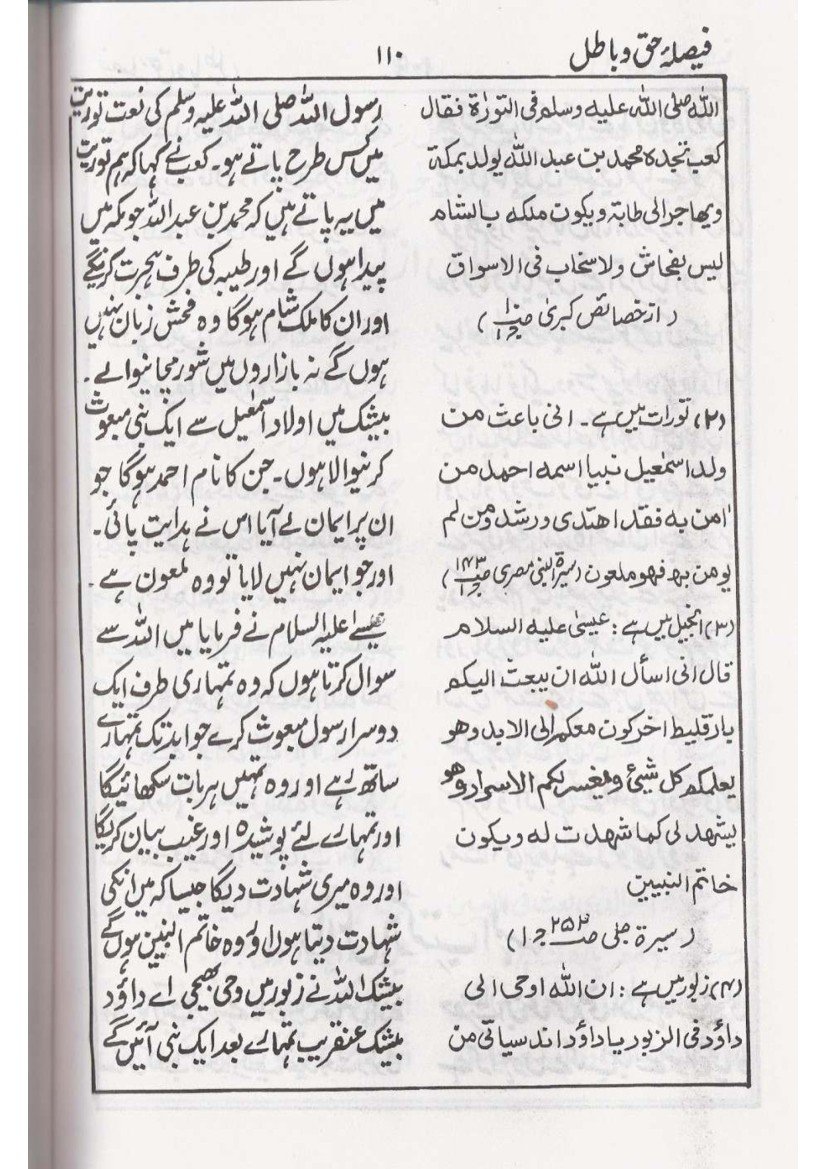 فیصلۂ حق و باطل
۱۱۰
اللہ صلی اللہ علیہ وسلم فی التوراۃ فقال
کعب تجدہ محمد بن عبد اللہ یولد بمکة
ویھاجر الی طابة ویکون ملکہ بالشام
لیس بفحاش ولا سخاب فی الاسواق
(از خصائص کبریٰ
(۲) تورات میں ہے۔ انی باعث من
ولد اسمٰعیل نبیا اسمہ احمد من
اٰمن بہ فقد اھتدی ورشد ومن لم
یومن بھ فھو ملعون (سیرۃ النبی مصری ص۱۴۳ ج۱)
(۳) انجیل میں ہے : عیسیٰ علیہ السلام
قال انی اسأل اللہ ان یبعث الیکم
بارقلیط اخر کون معکم الی الابد وھو
یعلمکم کل شیئ ویفسر لکم الاسرار وھو
یشھد لی کما شھدت لہ ویکون
خاتم النبیین
(سیرۃ حلبی ص۲۵۲ ج۱)
(۴) زبور میں ہے : ان اللہ اوحی الی
داؤد فی الزبور یا داؤد انہ سیاتی من
رسول اللہ صلی اللہ علیہ وسلم کی نعت توریت
میں کس طرح پاتے ہو۔ کعب نے کہا کہ ہم توریت
میں یہ پاتے ہیں کہ محمد بن عبد اللہ جو مکہ میں
پیدا ہوں گے اور طیبہ کی طرف ہجرت کرینگے
اور ان کا ملک شام ہوگا وہ فحش زبان نہیں
ہوں گے نہ بازاروں میں شور مچانیوالے۔
بیشک میں اولاد اسمٰعیل سے ایک نبی مبعوث
کرنیوالا ہوں۔ جن کا نام احمد ہوگا جو
ان پر ایمان لے آیا اس نے ہدایت پائی۔
اور جو ایمان نہیں لایا تو وہ ملعون ہے۔
عیسےٰ علیہ السلام نے فرمایا میں اللہ سے
سوال کرتا ہوں کہ وہ تمہاری طرف ایک
دوسرا رسول مبعوث کرے جو ابد تک تمہارے
ساتھ رہے اور وہ تمہیں ہر بات سکھائیگا
اور تمہارے لئے پوشیدہ اور غیب بیان کریگا
اور وہ میری شہادت دیگا جیسا کہ میں انکی
شہادت دیتا ہوں اور وہ خاتم النبیین ہوں گے
بیشک اللہ نے زبور میں وحی بھیجی اے داؤد
بیشک عنقریب تمہارے بعد ایک نبی آئیں گے